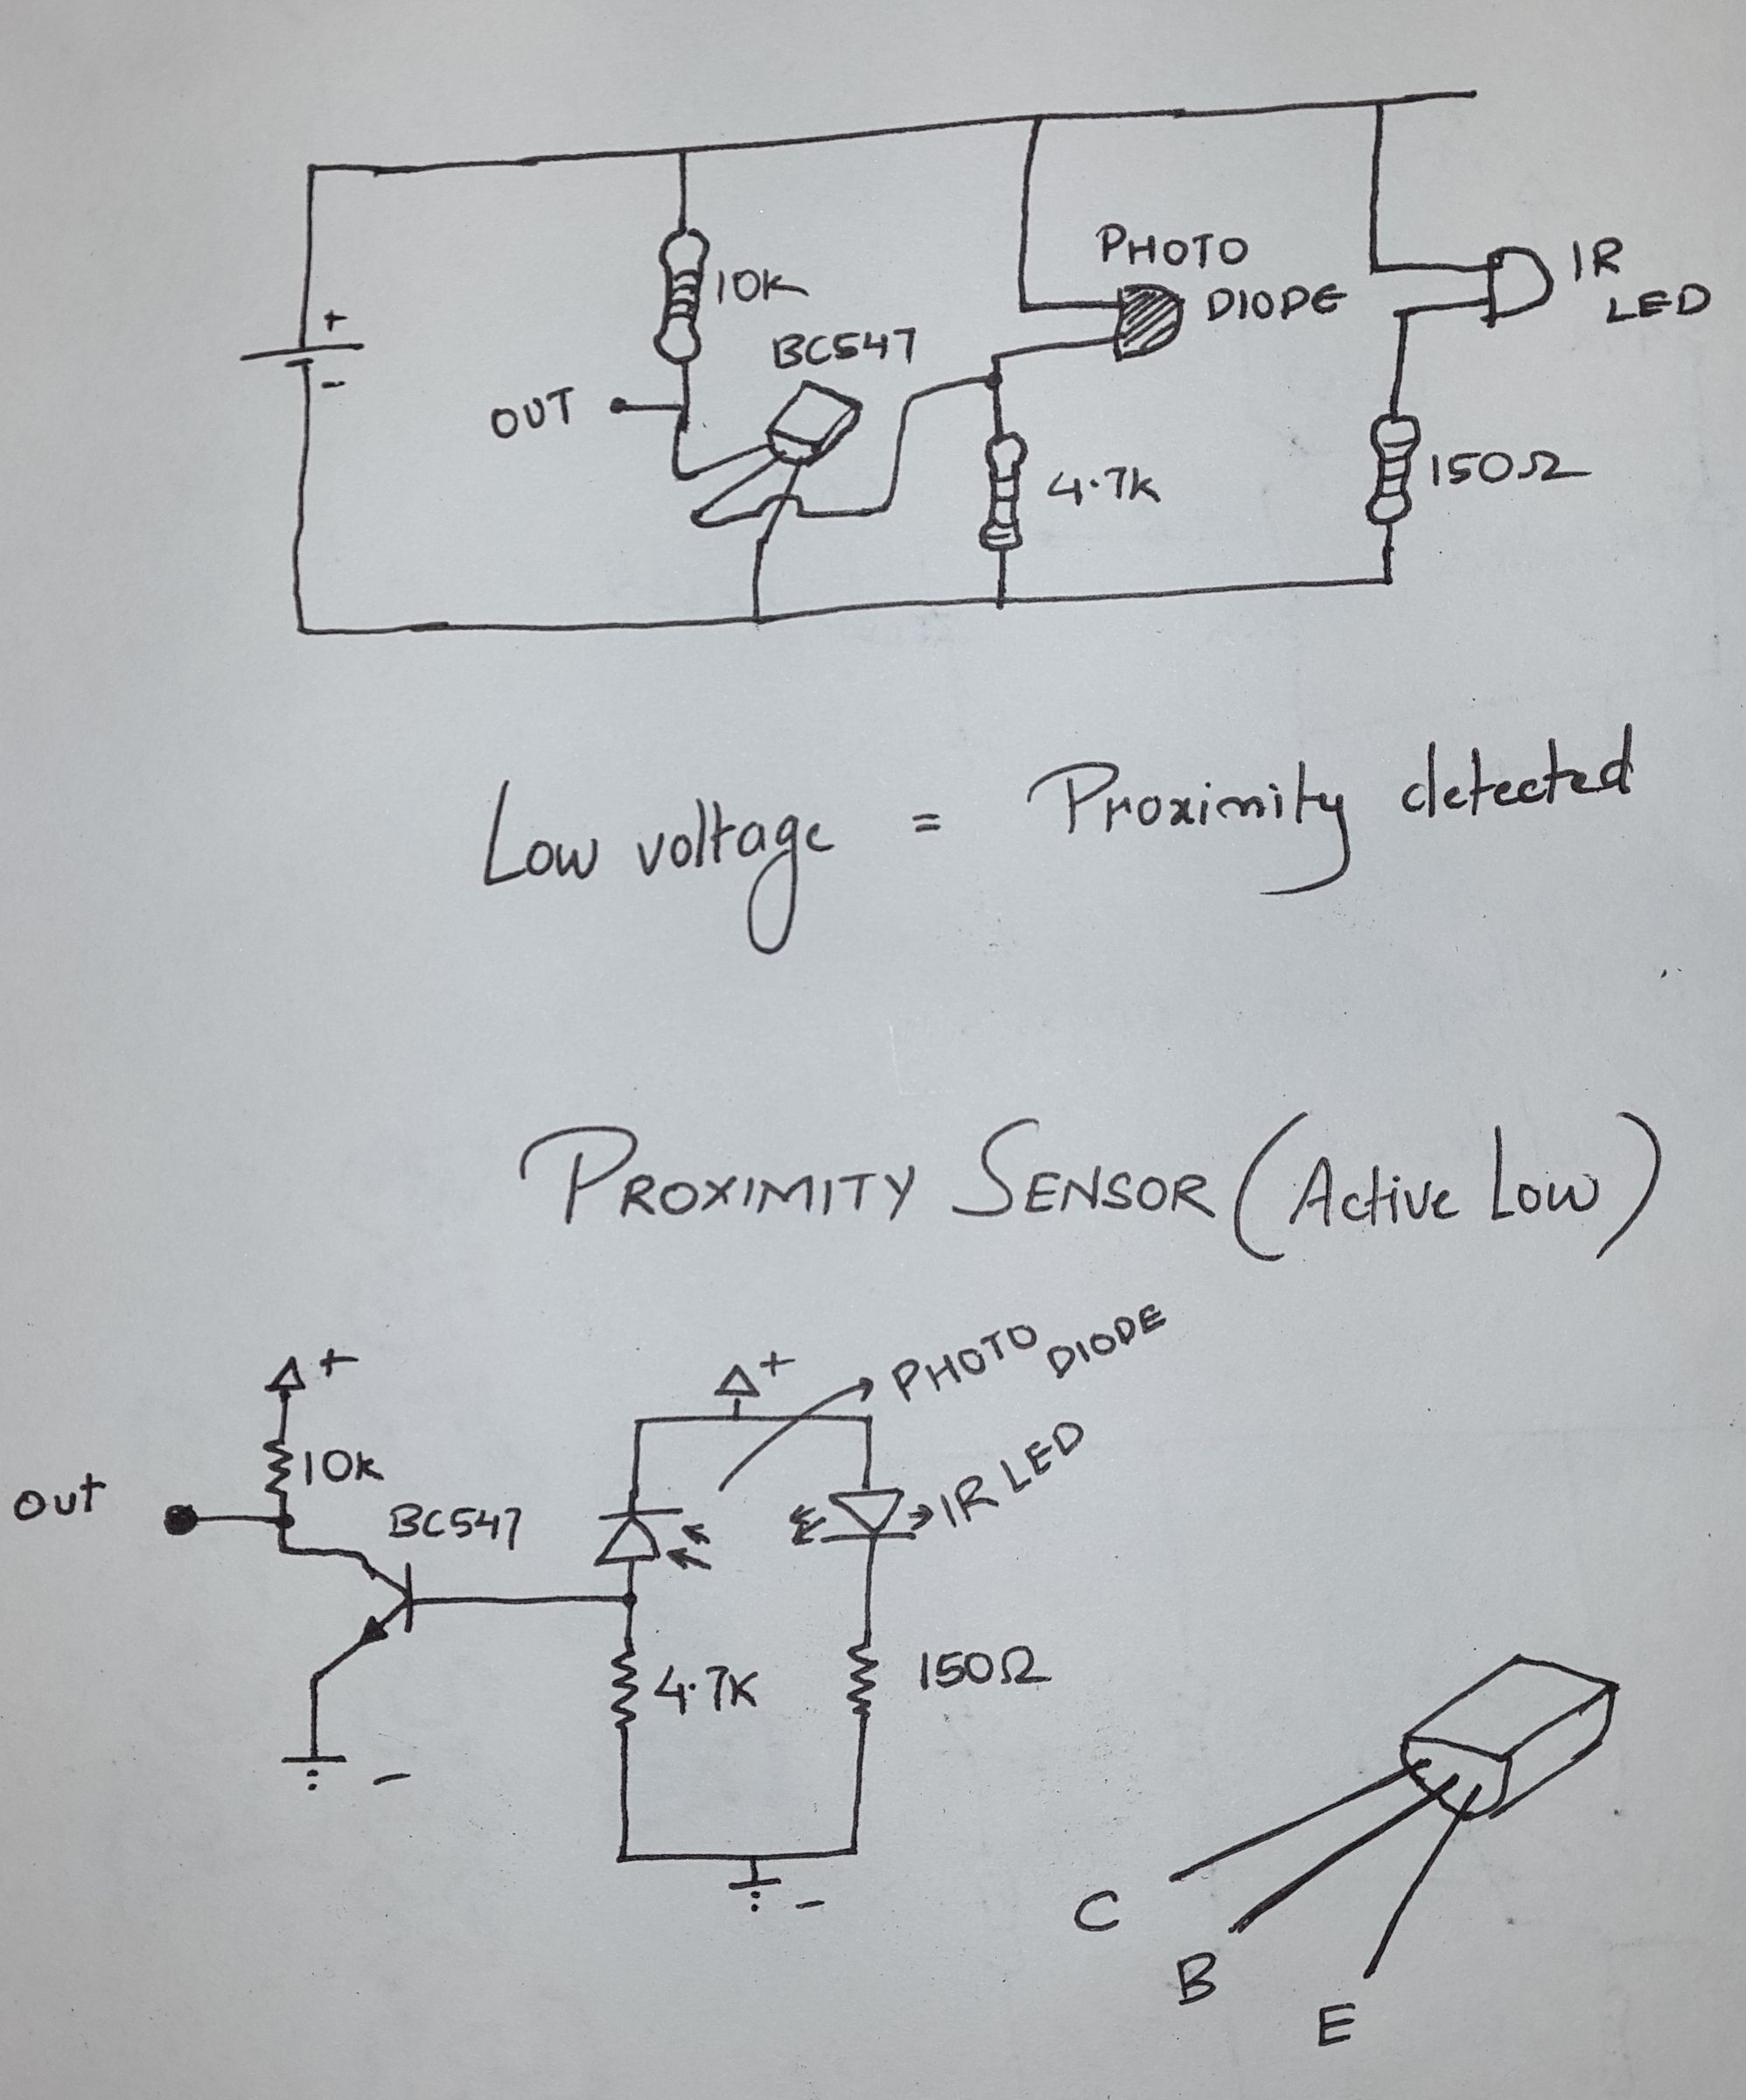 PHOTO
DIODE
IR
LED
+
10K
BC547
-
OUT
4.7K
150Ω
Low voltage = Proximity detected
PROXIMITY SENSOR (Active Low)
+
+
PHOTO DIODE
10K
IR LED
out
BC547
4.7K
150Ω
-
-
C
B
E